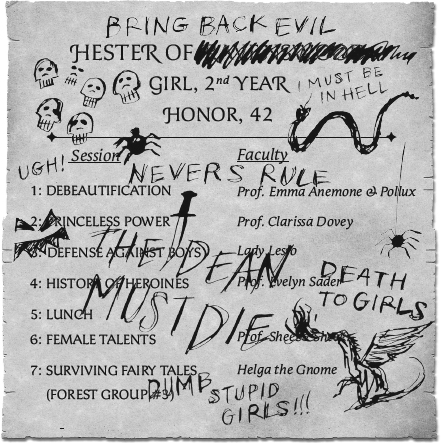 BRING BACK EVIL
HESTER OF
GIRL, 2nd YEAR
I MUST BE
IN HELL
HONOR, 42
UGH!
Session Faculty
NEVERS RULE
1: DEBEAUTIFICATION Prof. Emma Anemone & Pollux
2: PRINCELESS POWER Prof. Clarissa Dovey
3: DEFENSE AGAINST BOYS Lady Lesso
THE DEAN
4: HISTORY OF HEROINES Prof. Evelyn Sader
DEATH
TO GIRLS
5: LUNCH
MUST DIE
6: FEMALE TALENTS Prof. Sheeba Sheeks
7: SURVIVING FAIRY TALES Helga the Gnome
(FOREST GROUP #3)
DUMB STUPID
GIRLS!!!